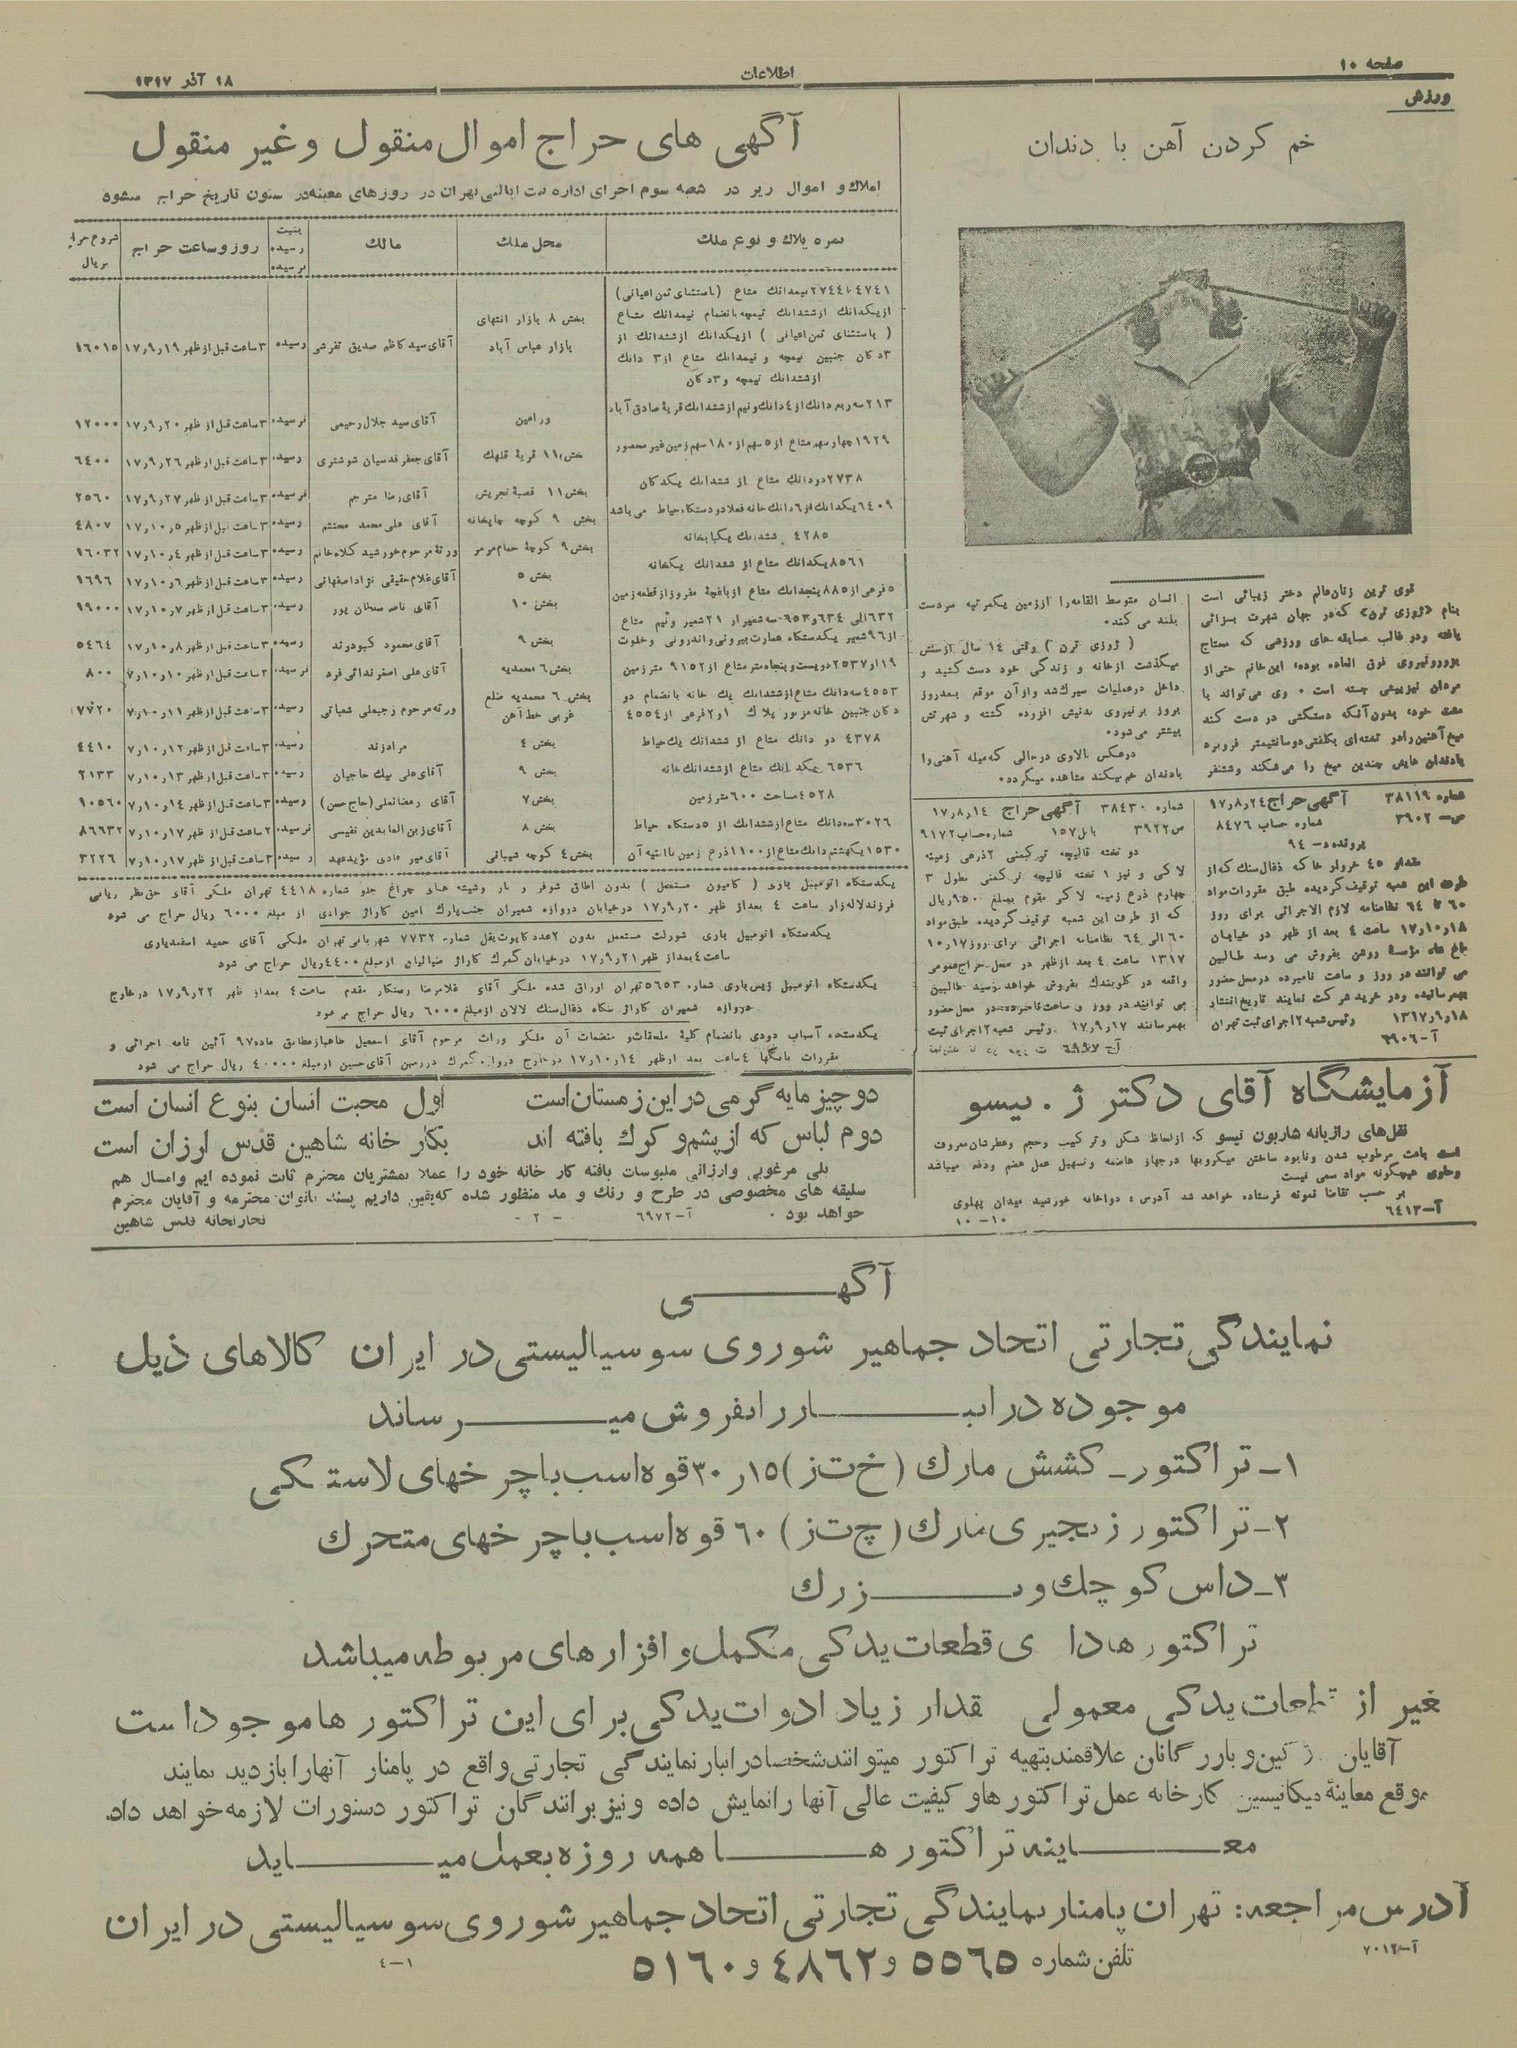 صفحه ۱۰
اطلاعات
۱۸ آذر ۱۳۱۷
ورزش
خم کردن آهن با دندان
قوی ترین زنان عالم دختر زیبائی است
بنام «ژوزی ترن» که در جهان شهرت بسزائی
یافته و در غالب مسابقه های ورزشی که محتاج
بزور و نیروی فوق العاده بوده، این خانم حتی از
مردان نیز پیشی جسته است . وی می تواند با
مشت خود، بدون آنکه دستکشی در دست کند
میخ آهنین را در تخته‌ای بکلفتی دو سانتیمتر فروبرده
با دندان هایش چندین میخ را می‌شکند و شش نفر
انسان متوسط القامه را از زمین یکمرتبه سر دست
بلند می کند.
( ژوزی ترن ) وقتی ۱۴ سال از سنش
میگذشت از خانه و زندگی خود دست کشید و
داخل در عملیات سیرک شد و از آن موقع ببعد روز
بروز بر نیروی بدنیش افزوده گشته و شهرتش
بیشتر می‌شود.
در عکس بالا وی در حالی که میله آهنی را
با دندان خم میکند مشاهده میگردد.
شماره ۳۸۱۱۹ آگهی حراج ۱۷٫۸٫۲۴
ص– ۳۹۰۲ شماره حساب ۸۴۷۶
پرونده د– ۹۴
مقدار ۴۵ خروار خاکه ذغال سنگ که از
طرف این شعبه توقیف گردیده طبق مقررات مواد
۶۰ تا ۶۴ نظامنامه لازم الاجرائی برای روز
۱۷٫۱۰٫۱۸ ساعت ۴ بعد از ظهر در خیابان
باغ شاه مؤسسه روشن بفروش می رسد طالبین
می توانند در روز و ساعت نامبرده در محل حضور
بهمرسانیده و در خرید شرکت نمایند تاریخ انتشار
۱۳۱۷٫۹٫۱۸ رئیس شعبه ۲ اجرای ثبت تهران
آ–۶۹۰۶
شماره ۳۸۴۳۰ آگهی حراج ۱۷٫۸٫۱۴
ص ۳۹۲۲ شماره حساب ۹۱۷۲
دو تخته قالیچه ترکمنی ۲ ذرعی زمینه
لاکی و نیز ۱ تخته قالیچه ترکمنی بطول ۳
چهارم ذرع زمینه لاکی مقوم بمبلغ ۹۵۰ ریال
که از طرف این شعبه توقیف گردیده طبق مواد
۶۰ الی ۶۴ نظامنامه اجرائی برای روز ۱۷ ر ۱۰
۱۳۱۷ ساعت ۴ بعد از ظهر در محل حراج عمومی
واقعه در گلوبندک بفروش خواهد رسید طالبین
می توانند در روز و ساعت نامبرده در محل حضور
بهمرسانند ۱۷٫۹٫۱۷ رئیس شعبه ۲ اجرای ثبت
آزمایشگاه آقای دکتر ژ . تیسو
نقل‌های رازیانه شاربون تیسو که از لحاظ شکل و ترکیب و حجم و عطرشان معروف
است باعث مرطوب شدن و نابود ساختن میکروبها در جهاز هاضمه و تسهیل عمل هضم و دفع میباشد
وحاوی هیچگونه مواد سمی نیست
بر حسب تقاضا نمونه فرستاده خواهد شد آدرس : دواخانه خورشید میدان پهلوی
آ–۶۴۱۳ ۱۰–۱۰
آگهی های حراج اموال منقول و غیر منقول
املاک و اموال زیر در شعبه سوم اجرای اداره ثبت ایالتی تهران در روزهای معینه در ستون تاریخ حراج میشود
نمره پلاک و نوع ملک | محل ملک | مالک | بثبت رسیده نرسیده | روز و ساعت حراج | شروع حراج بریال
۴۷۴۱ تا ۲۷۴۴ نیمدانگ مشاع (باستثنای ثمن اعیانی)
از یکدانگ از ششدانگ تیمچه بانضمام نیمدانگ مشاع
( باستثنای ثمن اعیانی ) از یکدانگ از ششدانگ از
۳ دکان جنبین تیمچه و نیمدانگ مشاع از ۳ دانگ
از ششدانگ تیمچه و ۳ دکان | بخش ۸ بازار انتهای بازار عباس آباد | آقای سید کاظم صدیق تفرشی | رسیده | ۳ ساعت قبل از ظهر ۱۷٫۹٫۱۹ | ۱۶۰۱۵
۲۱۳ سه ربع دانگ از ۴ دانگ و نیم از ششدانگ قریه صادق آباد | ورامین | آقای سید جلال رحیمی | نرسیده | ۳ ساعت قبل از ظهر ۱۷٫۹٫۲۰ | ۱۲۰۰۰
۱۹۲۹ چهار سهم مشاع از ۵ سهم از ۱۸۰ سهم زمین غیر محصور | بخش ۱۱ قریه قلهک | آقای جعفر قدسیان شوشتری | رسیده | ۳ ساعت قبل از ظهر ۱۷٫۹٫۲۶ | ۶۴۰۰
۲۷۳۸ دودانگ مشاع از ششدانگ یکدکان | بخش ۱۱ قصبه تجریش | آقای رضا مترجم | نرسیده | ۳ ساعت قبل از ظهر ۱۷٫۹٫۲۷ | ۲۵۶۰
۶۴۰۹ یکدانگ از ۶ دانگ خانه فعلا دو دستگاه حیاط می باشد | بخش ۹ کوچه چاپخانه | آقای علی محمد محتشم | رسیده | ۳ ساعت قبل از ظهر ۱۷٫۱۰٫۵ | ۴۸۰۷
۴۲۸۵ ششدانگ یکبابخانه | بخش ۹ کوچه حمام مرمر | ورثه مرحوم خورشید کلاه خانم | رسیده | ۳ ساعت قبل از ظهر ۱۷٫۱۰٫۴ | ۱۶۰۳۲
۸۵۶۱ یکدانگ مشاع از ششدانگ یکخانه | بخش ۵ | آقای غلام حقیقی نژاد اصفهانی | رسیده | ۳ ساعت قبل از ظهر ۱۷٫۱۰٫۶ | ۱۶۹۶
۵ فرعی از ۸۸۵ پنجدانگ مشاع از باغچه مفروز از قطعه زمین | بخش ۱۰ | | رسیده | ۳ ساعت قبل از ظهر ۱۷٫۱۰٫۷ | ۱۹۰۰۰
۶۳۲ الی ۶۳۴ و ۶۵۳ سه شعیر از ۲۱ شعیر و نیم مشاع
از ۹۶ شعیر یکدستگاه عمارت بیرونی و اندرونی و خلوت | بخش ۹ | آقای محمود کبودوند | رسیده | ۳ ساعت قبل از ظهر ۱۷٫۱۰٫۸ | ۵۴۶۴
۱۹ از ۲۵۳۷ دویست و پنجاه متر مشاع از ۹۱۵۲ متر زمین | بخش ۶ محمدیه | آقای علی اصغر ندائی فرد | نرسیده | ۳ ساعت قبل از ظهر ۱۰٫۱۰٫۷ | ۸۰۰
۴۵۵۳ سه دانگ مشاع از ششدانگ یک خانه بانضمام دو
دکان جنبین خانه مزبور پلاک ۱ و ۲ فرعی از ۴۵۵۴ | بخش ۶ محمدیه ضلع غربی خط آهن | ورثه مرحوم رجبعلی شعبانی | رسیده | ۳ ساعت قبل از ظهر ۱۱٫۱۰٫۷ | ۷۷۲۰
۴۳۷۸ دو دانگ مشاع از ششدانگ یک حیاط | بخش ۴ | مرادزند | رسیده | ۳ ساعت قبل از ظهر ۱۲٫۱۰٫۷ | ۴۴۱۰
۶۵۳۶ یکدانگ مشاع از ششدانگ خانه | بخش ۹ | آقای علی بیک حاجیان | رسیده | ۳ ساعت قبل از ظهر ۱۳٫۱۰٫۷ | ۲۱۳۳
۴۵۲۸ مساحت ۶۰۰ متر زمین | بخش ۷ | آقای رمضانعلی (حاج حسن) | رسیده | ۳ ساعت قبل از ظهر ۱۴٫۱۰٫۷ | ۱۰۵۶۰
۳۰۲۶ سه دانگ مشاع از ششدانگ از ۵ دستگاه حیاط | بخش ۸ | آقای زین العابدین نفیسی | نرسیده | ۲ ساعت قبل از ظهر ۱۷٫۱۰٫۷ | ۸۶۶۳۲
۱۵۳۰ یکهشتم دانگ مشاع از ۱۱۰۰ ذرع زمین با ابنیه آن | بخش ۴ کوچه شیبانی | آقای میر هادی مؤید عهد | رسیده | ۳ ساعت قبل از ظهر ۱۷٫۱۰٫۱۷ | ۳۲۲۶
یکدستگاه اتومبیل باری ( کامیون مستعمل ) بدون اطاق شوفر و بار وشیشه های چراغ جلو شماره ۴۴۱۸ تهران ملکی آقای حق نظر ریاسی
فرزند لاله زار ساعت ۴ بعد از ظهر ۱۷٫۹٫۲۰ در خیابان دروازه شمیران جنب پارک امین گاراژ جوادی از مبلغ ۶۰۰۰ ریال حراج می شود
یکدستگاه اتومبیل باری شورلت مستعمل بدون ۲ عدد کاپوت بغل شماره ۷۷۳۲ شهربانی تهران ملکی آقای حمید اسفندیاری
ساعت ۴ بعد از ظهر ۱۷٫۹٫۲۱ در خیابان گمرک گاراژ ضیائیان از مبلغ ۴۴۰۰ ریال حراج می شود
یکدستگاه اتومبیل زیس باری شماره ۵۶۵۳ تهران اوراق شده ملکی آقای غلامرضا رستگار مقدم ساعت ۴ بعد از ظهر ۱۷٫۹٫۲۲ در خارج
دروازه شمیران گاراژ بنگاه ذغال سنگ لالان از مبلغ ۶۰۰۰ ریال حراج می شود
یکدسته آسیاب دودی بانضمام کلیه ملحقات و منضمات آن ملکی وراث مرحوم آقای اسمعیل طاهباز مطابق ماده ۹۷ آئین نامه اجرائی و
مقررات بانکها ۴ ساعت بعد از ظهر ۱۷٫۱۰٫۱۴ در خارج دروازه گمرک در زمین آقای حسین از مبلغ ۴۰۰۰۰ ریال حراج می شود
دو چیز مایه گرمی در این زمستان است اول محبت انسان بنوع انسان است
دوم لباس که از پشم و کرک بافته اند بکار خانه شاهین قدس ارزان است
بلی مرغوبی و ارزانی ملبوسات بافته کار خانه خود را عملا بمشتریان محترم ثابت نموده ایم و امسال هم
سلیقه های مخصوصی در طرح و رنگ و مد منظور شده که یقین داریم پسند بانوان محترمه و آقایان محترم
خواهد بود . آ–۶۹۷۲ – ۲ – کارخانه قدس شاهین
آگهی
نمایندگی تجارتی اتحاد جماهیر شوروی سوسیالیستی در ایران کالاهای ذیل
موجوده در انبار را بفروش میرساند
۱– تراکتور – کشش مارک (خ ت ز) ۱۵ر۳۰ قوه اسب با چرخهای لاستیکی
۲– تراکتور زنجیری مارک (چ ت ز) ۶۰ قوه اسب با چرخهای متحرک
۳– داس کوچک و بزرگ
تراکتورها دارای قطعات یدکی مکمل و افزارهای مربوطه میباشد
غیر از قطعات یدکی معمولی مقدار زیاد ادوات یدکی برای این تراکتورها موجود است
آقایان مالکین و بازرگانان علاقمند بتهیه تراکتور میتوانند شخصا در انبار نمایندگی تجارتی واقع در پامنار آنها را بازدید نمایند
موقع معاینه میکانیسین کارخانه عمل تراکتورها و کیفیت عالی آنها را نمایش داده و نیز برانندگان تراکتور دستورات لازمه خواهد داد.
معاینه تراکتورها همه روزه بعمل میاید
آدرس مراجعه: تهران پامنار نمایندگی تجارتی اتحاد جماهیر شوروی سوسیالیستی در ایران
آ–۷۰۱۲ تلفن شماره ۵۵۶۵ و ۴۸۶۲ و ۵۱۶۰ ۱–۴